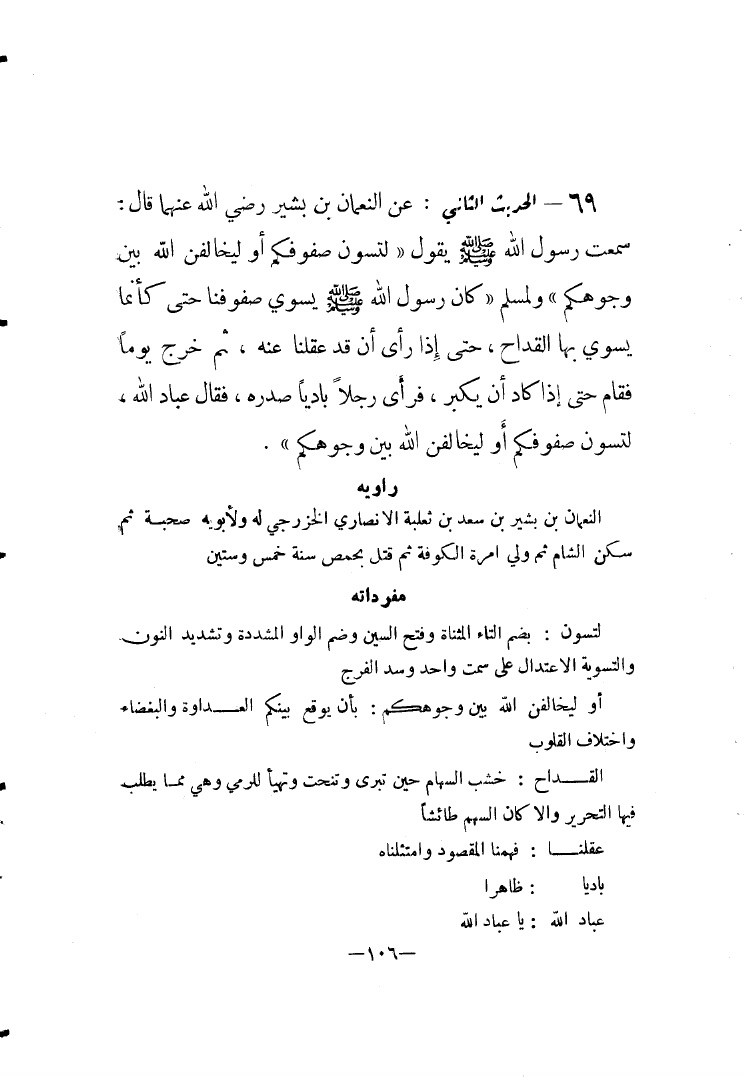 ٦٩ — الحديث الثاني : عن النعمان بن بشير رضي الله عنهما قال :
سمعت رسول الله ﷺ يقول « لتسون صفوفكم أو ليخالفن الله بين
وجوهكم » ولمسلم « كان رسول الله ﷺ يسوي صفوفنا حتى كأنما
يسوي بها القداح ، حتى إذا رأى أن قد عقلنا عنه ، ثم خرج يوماً
فقام حتى إذا كاد أن يكبر ، فرأى رجلاً بادياً صدره ، فقال عباد الله ،
لتسون صفوفكم أو ليخالفن الله بين وجوهكم » .
راويه
النعمان بن بشير بن سعد بن ثعلبة الانصاري الخزرجي له ولأبويه صحبة ثم
سكن الشام ثم ولي امرة الكوفة ثم قتل بحمص سنة خمس وستين
مفرداته
لتسون : بضم التاء المثناة وفتح السين وضم الواو المشددة وتشديد النون
والتسوية الاعتدال على سمت واحد وسد الفرج
أو ليخالفن الله بين وجوهكم : بأن يوقع بينكم العداوة والبغضاء
واختلاف القلوب
القداح : خشب السهام حين تبرى وتنحت وتهيأ للرمي وهي مما يطلب
فيها التحرير والا كان السهم طائشاً
عقلنا : فهمنا المقصود وامتثلناه
باديا : ظاهرا
عباد الله : يا عباد الله
—١٠٦—